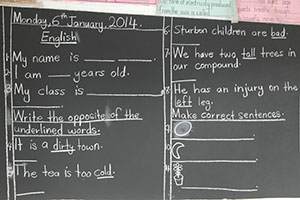 Monday, 6th January, 2014.
English
1 My name is ___ ___.
2 I am ___ years old.
3 My class is ___
Write the opposite of the
underlined words.
4 It is a dirty town.
5 The tea is too cold.
6 Sturbon children are bad.
7 We have two tall trees in
our compound.
8 He has an injury on the
left leg.
Make correct sentences.
9
10
11